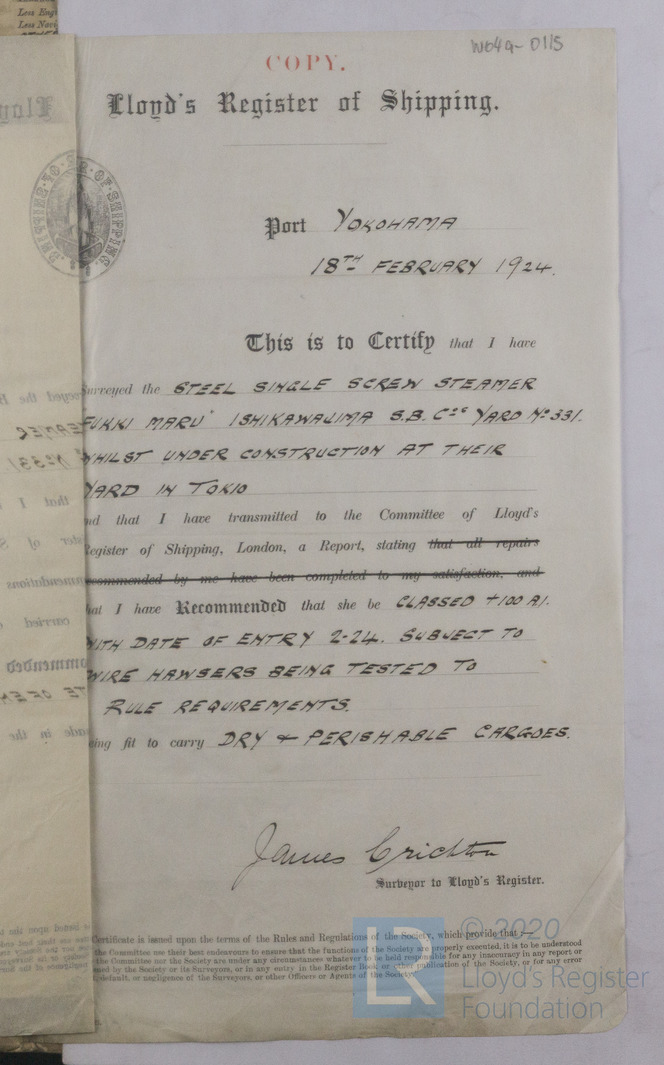 Less Engi
Less Navi
W649-0115
COPY.
Lloyd's Register of Shipping.
Port YOKOHAMA
18TH FEBRUARY 1924.
This is to Certify that I have
Surveyed the STEEL SINGLE SCREW STEAMER
FUKKI MARU" ISHIKAWAJIMA S.B. Cos YARD No 331.
WHILST UNDER CONSTRUCTION AT THEIR
YARD IN TOKIO
nd that I have transmitted to the Committee of Lloyd's
Register of Shipping, London, a Report, stating that all repairs
recommended by me have been completed to my satisfaction, and
hat I have Recommended that she be CLASSED +100 A1.
WITH DATE OF ENTRY 2-24. SUBJECT TO
WIRE HAWSERS BEING TESTED TO
RULE REQUIREMENTS.
eing fit to carry DRY & PERISHABLE CARGOES.
James Crichton
Surveyor to Lloyd's Register.
Certificate is issued upon the terms of the Rules and Regulations of the Society, which provide that:—
the Committee use their best endeavours to ensure that the functions of the Society are properly executed, it is to be understood
the Committee nor the Society are under any circumstances whatever to be held responsible for any inaccuracy in any report or
sued by the Society or its Surveyors, or in any entry in the Register Book or other publication of the Society, or for any error
default, or negligence of the Surveyors, or other Officers or Agents of the Society.
LR
© 2020
Lloyd's Register
Foundation